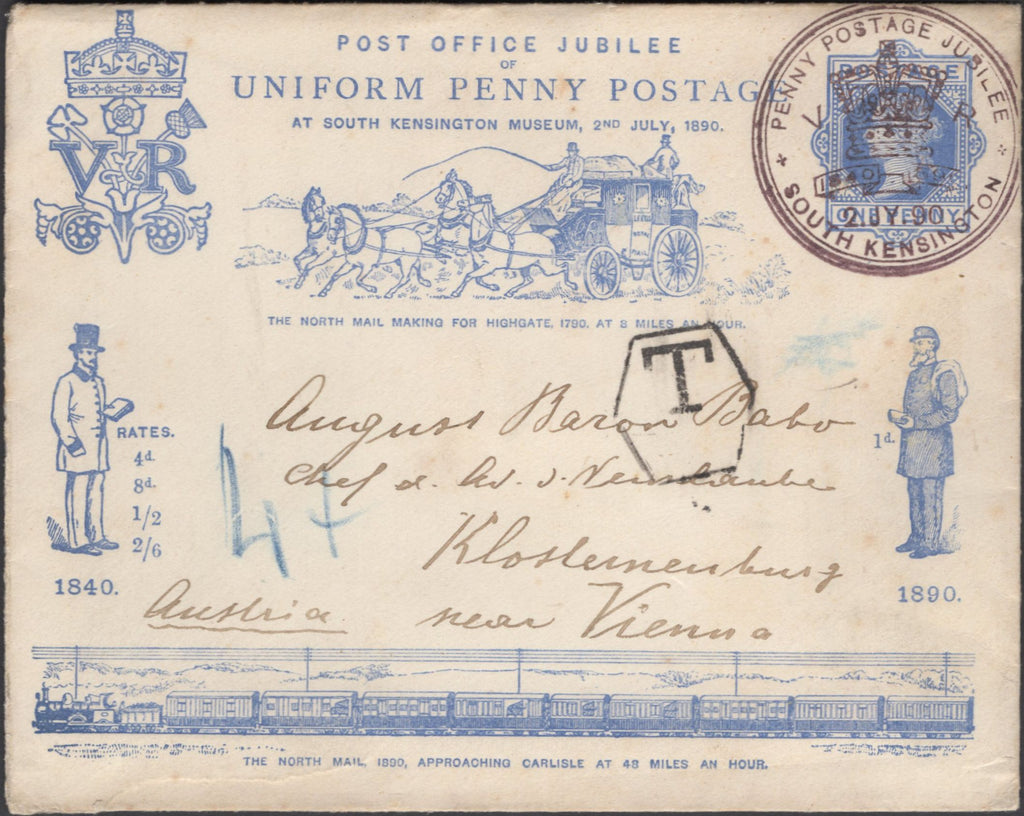 POST OFFICE JUBILEE
OF
UNIFORM PENNY POSTAG
AT SOUTH KENSINGTON MUSEUM, 2ND JULY, 1890.
PENNY POSTAGE JUBILEE
V R
2 JY 90
SOUTH KENSINGTON
POSTAGE
ONE PENNY
VR
THE NORTH MAIL MAKING FOR HIGHGATE, 1790. AT 8 MILES AN HOUR.
T
RATES.
4d.
8d.
1/2
2/6
1840.
1d.
1890.
August Baron Babo
Chef d. Av. v.
Klosterneuburg
near Vienna
Austria
4+
THE NORTH MAIL, 1890, APPROACHING CARLISLE AT 48 MILES AN HOUR.